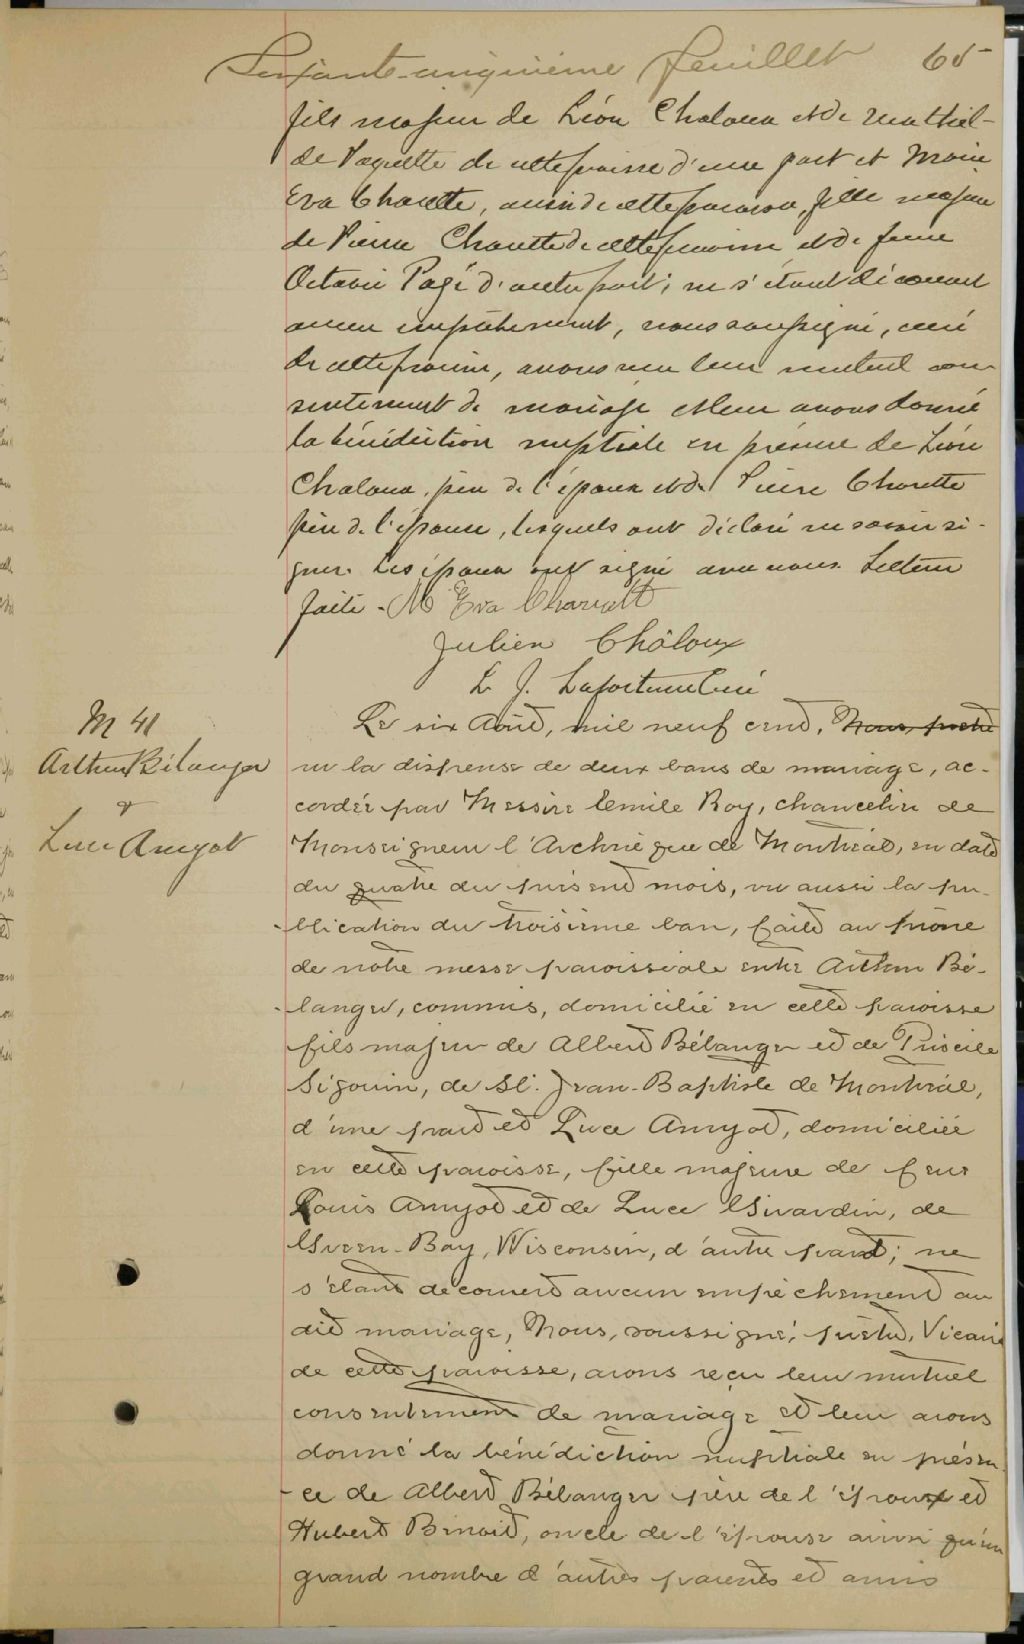 Soixante-cinquième feuillet 65
fils majeur de Léon Chaloux et de Mathil-
de Paquette de cette paroisse d'une part et Marie
Eva Charette, aussi de cette paroisse, fille majeure
de Pierre Charette de cette paroisse et de feue
Octavie Pagé d'autre part; ne s'étant découvert
aucun empêchement, nous soussigné, curé
de cette paroisse, avons reçu leur mutuel con-
sentement de mariage et leur avons donné
la bénédiction nuptiale en présence de Léon
Chaloux, père de l'époux et de Pierre Charette
père de l'épouse, lesquels ont déclaré ne savoir si-
gner. Les époux ont signé avec nous. Lecture
faite. M Eva Charrette
Julien Châloux
L. J. Lafortune Curé
M 41
Arthur Bélanger
&
Luce Amyot
Le six Août, mil neuf cent, Nous, prêtre
vu la dispense de deux bans de mariage, ac-
cordée par Messire Emile Roy, chancelier de
Monseigneur l'Archevêque de Montréal, en date
du quatre du présent mois, vu aussi la pu-
blication du troisième ban, faite au prône
de notre messe paroissiale entre Arthur Bé-
langer, commis, domicilié en cette paroisse
fils majeur de Albert Bélanger et de Priscile
Sigouin, de St. Jean-Baptiste de Montréal,
d'une part et Luce Amyot, domiciliée
en cette paroisse, fille majeure de feue
Louis Amyot et de Luce Girardin, de
Green-Bay, Wisconsin, d'autre part; ne
s'étant découvert aucun empêchement au
dit mariage, Nous, soussigné, prêtre, Vicaire
de cette paroisse, avons reçu leur mutuel
consentement de mariage et leur avons
donné la bénédiction nuptiale en présen-
ce de Albert Bélanger père de l'époux et
Hubert Benoit, oncle de l'épouse ainsi qu'un
grand nombre d'autres parents et amis